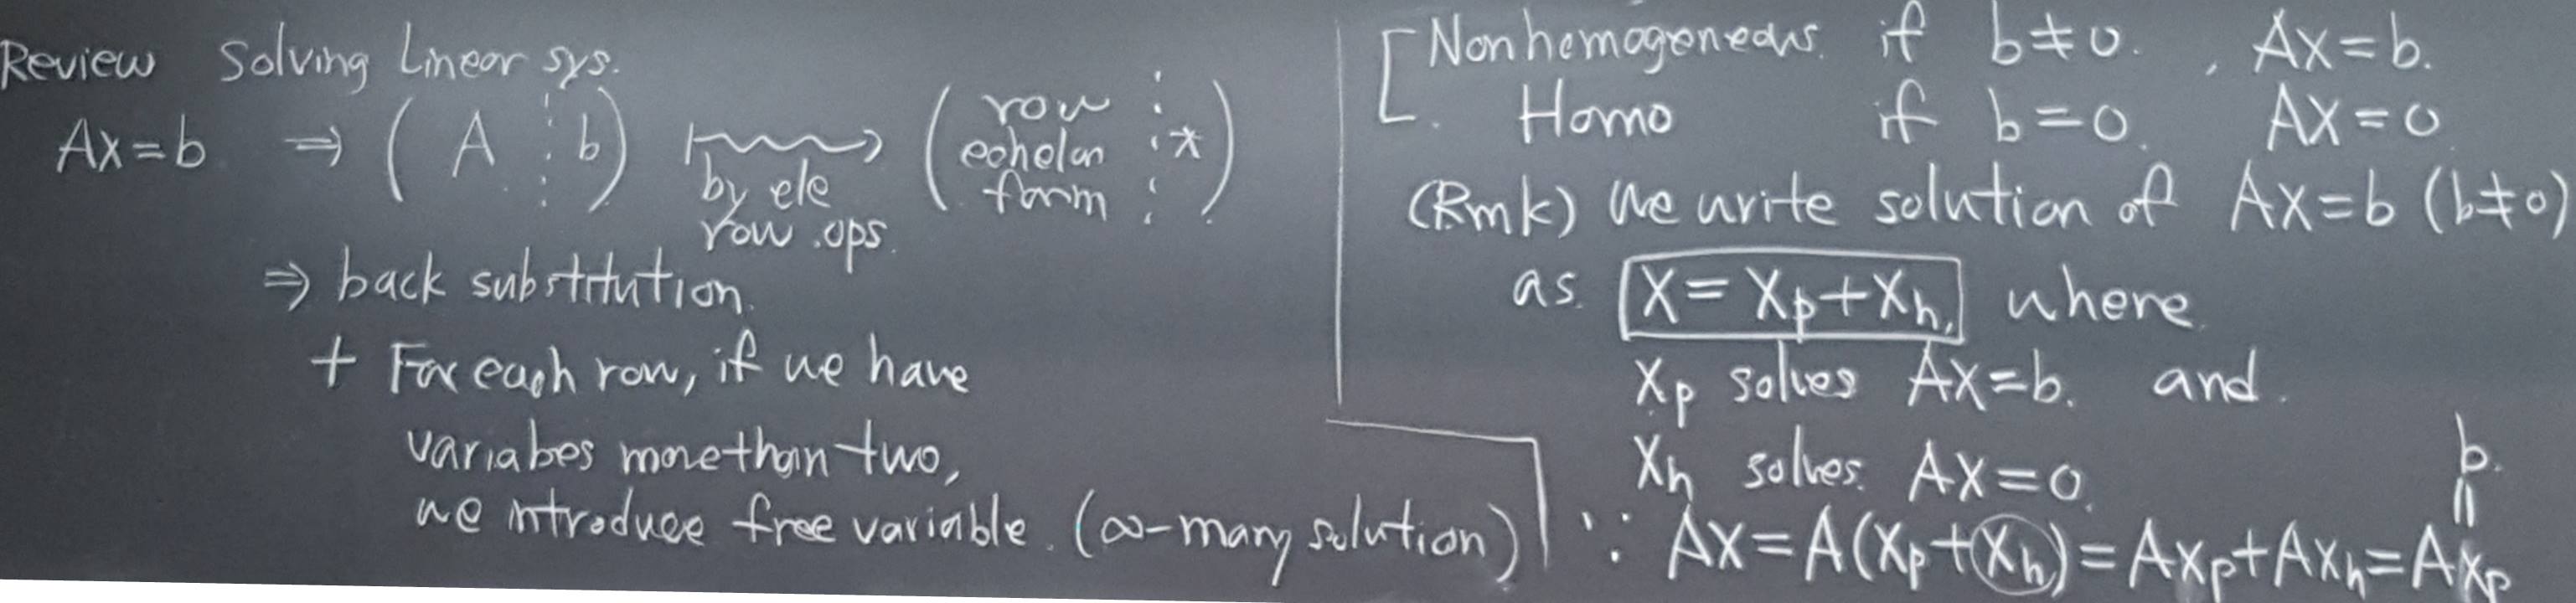 Review Solving Linear sys.
Ax=b ⇒ ( A ⋮ b ) ⟼ by ele row ops. ( row echelon form ⋮ * )
⇒ back substitution.
+ For each row, if we have
variabes more than two,
we introduce free variable. (∞-many solution)
[ Nonhemogeneous. if b≠0. , Ax=b.
Homo if b=0. Ax=0
(Rmk) We write solution of Ax=b (b≠0)
as. X=Xp+Xh, where.
Xp solves Ax=b. and.
Xh solves. Ax=0.
b.
||
∵ Ax=A(Xp+Xh)=Axp+Axh=Axp